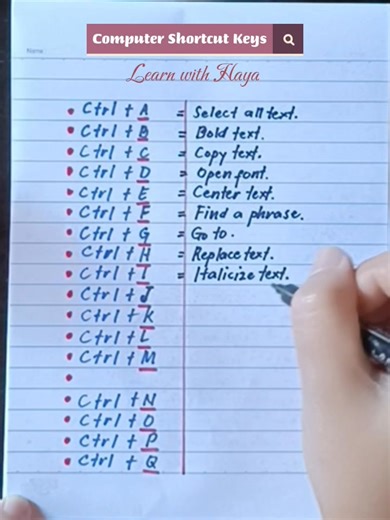 Computer Shortcut Keys
Learn with Haya
Name
• Ctrl + A = Select all text.
• Ctrl + B = Bold text.
• Ctrl + C = Copy text.
• Ctrl + D = Open font.
• Ctrl + E = Center text.
• Ctrl + F = Find a phrase.
• Ctrl + G = Go to.
• Ctrl + H = Replace text.
• Ctrl + I = Italicize text.
• Ctrl + J
• Ctrl + K
• Ctrl + L
• Ctrl + M
•
• Ctrl + N
• Ctrl + O
• Ctrl + P
• Ctrl + Q